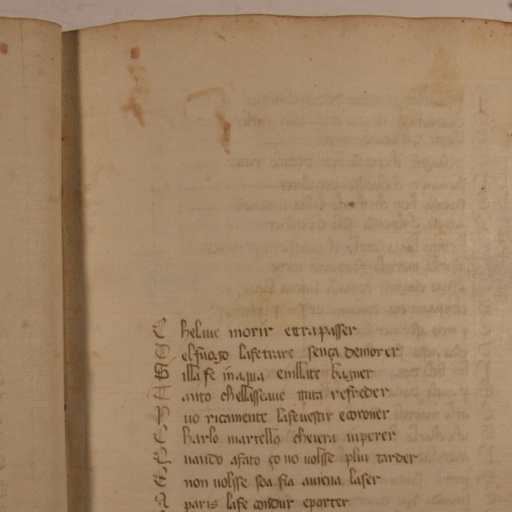 C helune morir et trapasser
D el fuogo la fe traire sença demorer
S illa fe in aqua en illaite bagner
T anto chellisseaue tuta refreder
P uo ricamente la fe uestir e coroner
C harlo martello cheiera inperer
Q uando a fato ço no uolsse plui tarder
E non uolsse soa fia auiena laser
A paris la fe condur e porter